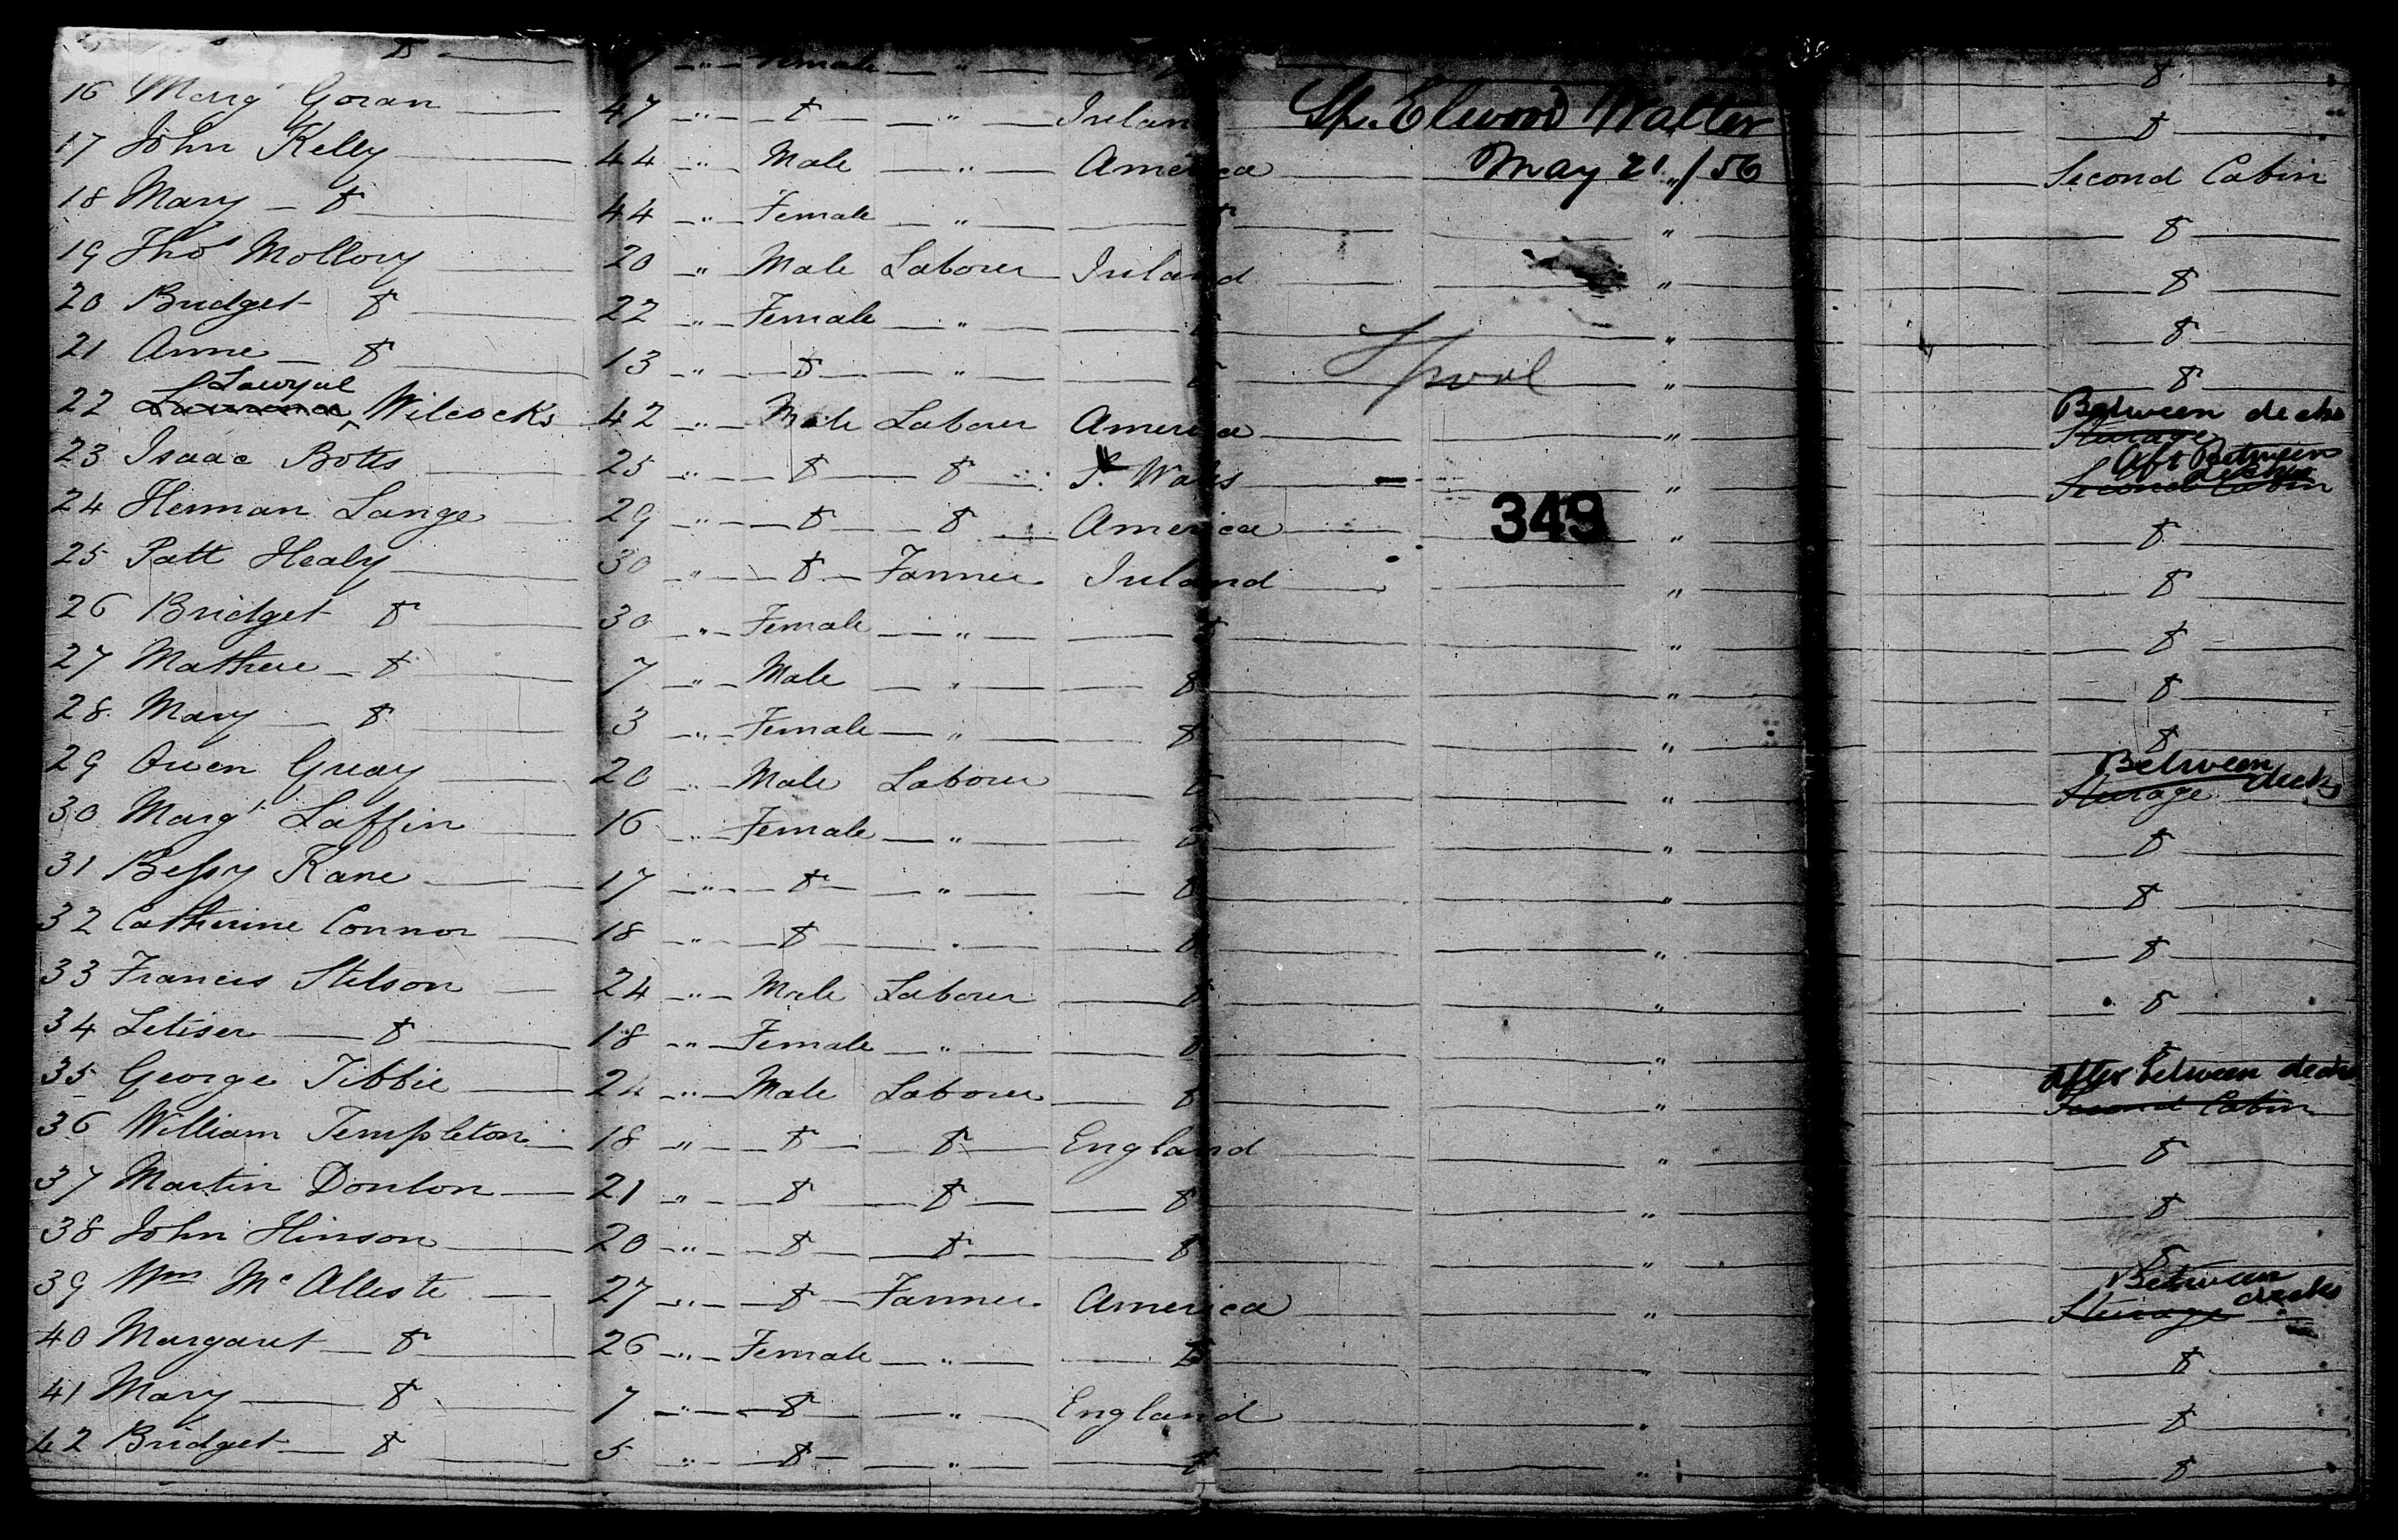 do Female "
16 Marg Goran 47 " do " Ireland do
17 John Kelly 44 " Male " America Second Cabin
18 Mary do 44 " Female " do " do
19 Thos Mollory 20 " Male Laborer Ireland " do
20 Bridget do 22 " Female " do " do
21 Anne do 13 " do " do " do
22 Lawrence Wilcocks 42 " Male Laborer America " Between decks Sturage
23 Isaac Botts 25 " do do S. Wales " Aft Between decks Second Cabin
24 Herman Lange 29 " do do America " do
25 Patt Healy 30 " do Farmer Ireland " do
26 Bridget do 30 " Female " do " do
27 Mathew do 7 " Male " do " do
28 Mary do 3 " Female " do " do
29 Owen Gray 20 " Male Laborer do " Between decks Sturage
30 Margt Laffin 16 " Female " do " do
31 Bessy Kane 17 " do " do " do
32 Catherine Connor 18 " do " do " do
33 Francis Stilson 24 " Male Laborer do " do
34 Letiser do 18 " Female " do "
35 George Tibbie 24 " Male Laborer do " After between decks Second Cabin
36 William Templeton 18 " do do England " do
37 Martin Donlon 21 " do do do " do
38 John Hinson 20 " do do do " do
39 Wm McAlleste 27 " do Farmer America " Between decks Sturage
40 Margaret do 26 " Female " do " do
41 Mary do 7 " do " England " do
42 Bridget do 5 " do " do " do
Sh. Elwood Walter
May 21 /56
Lpool
349